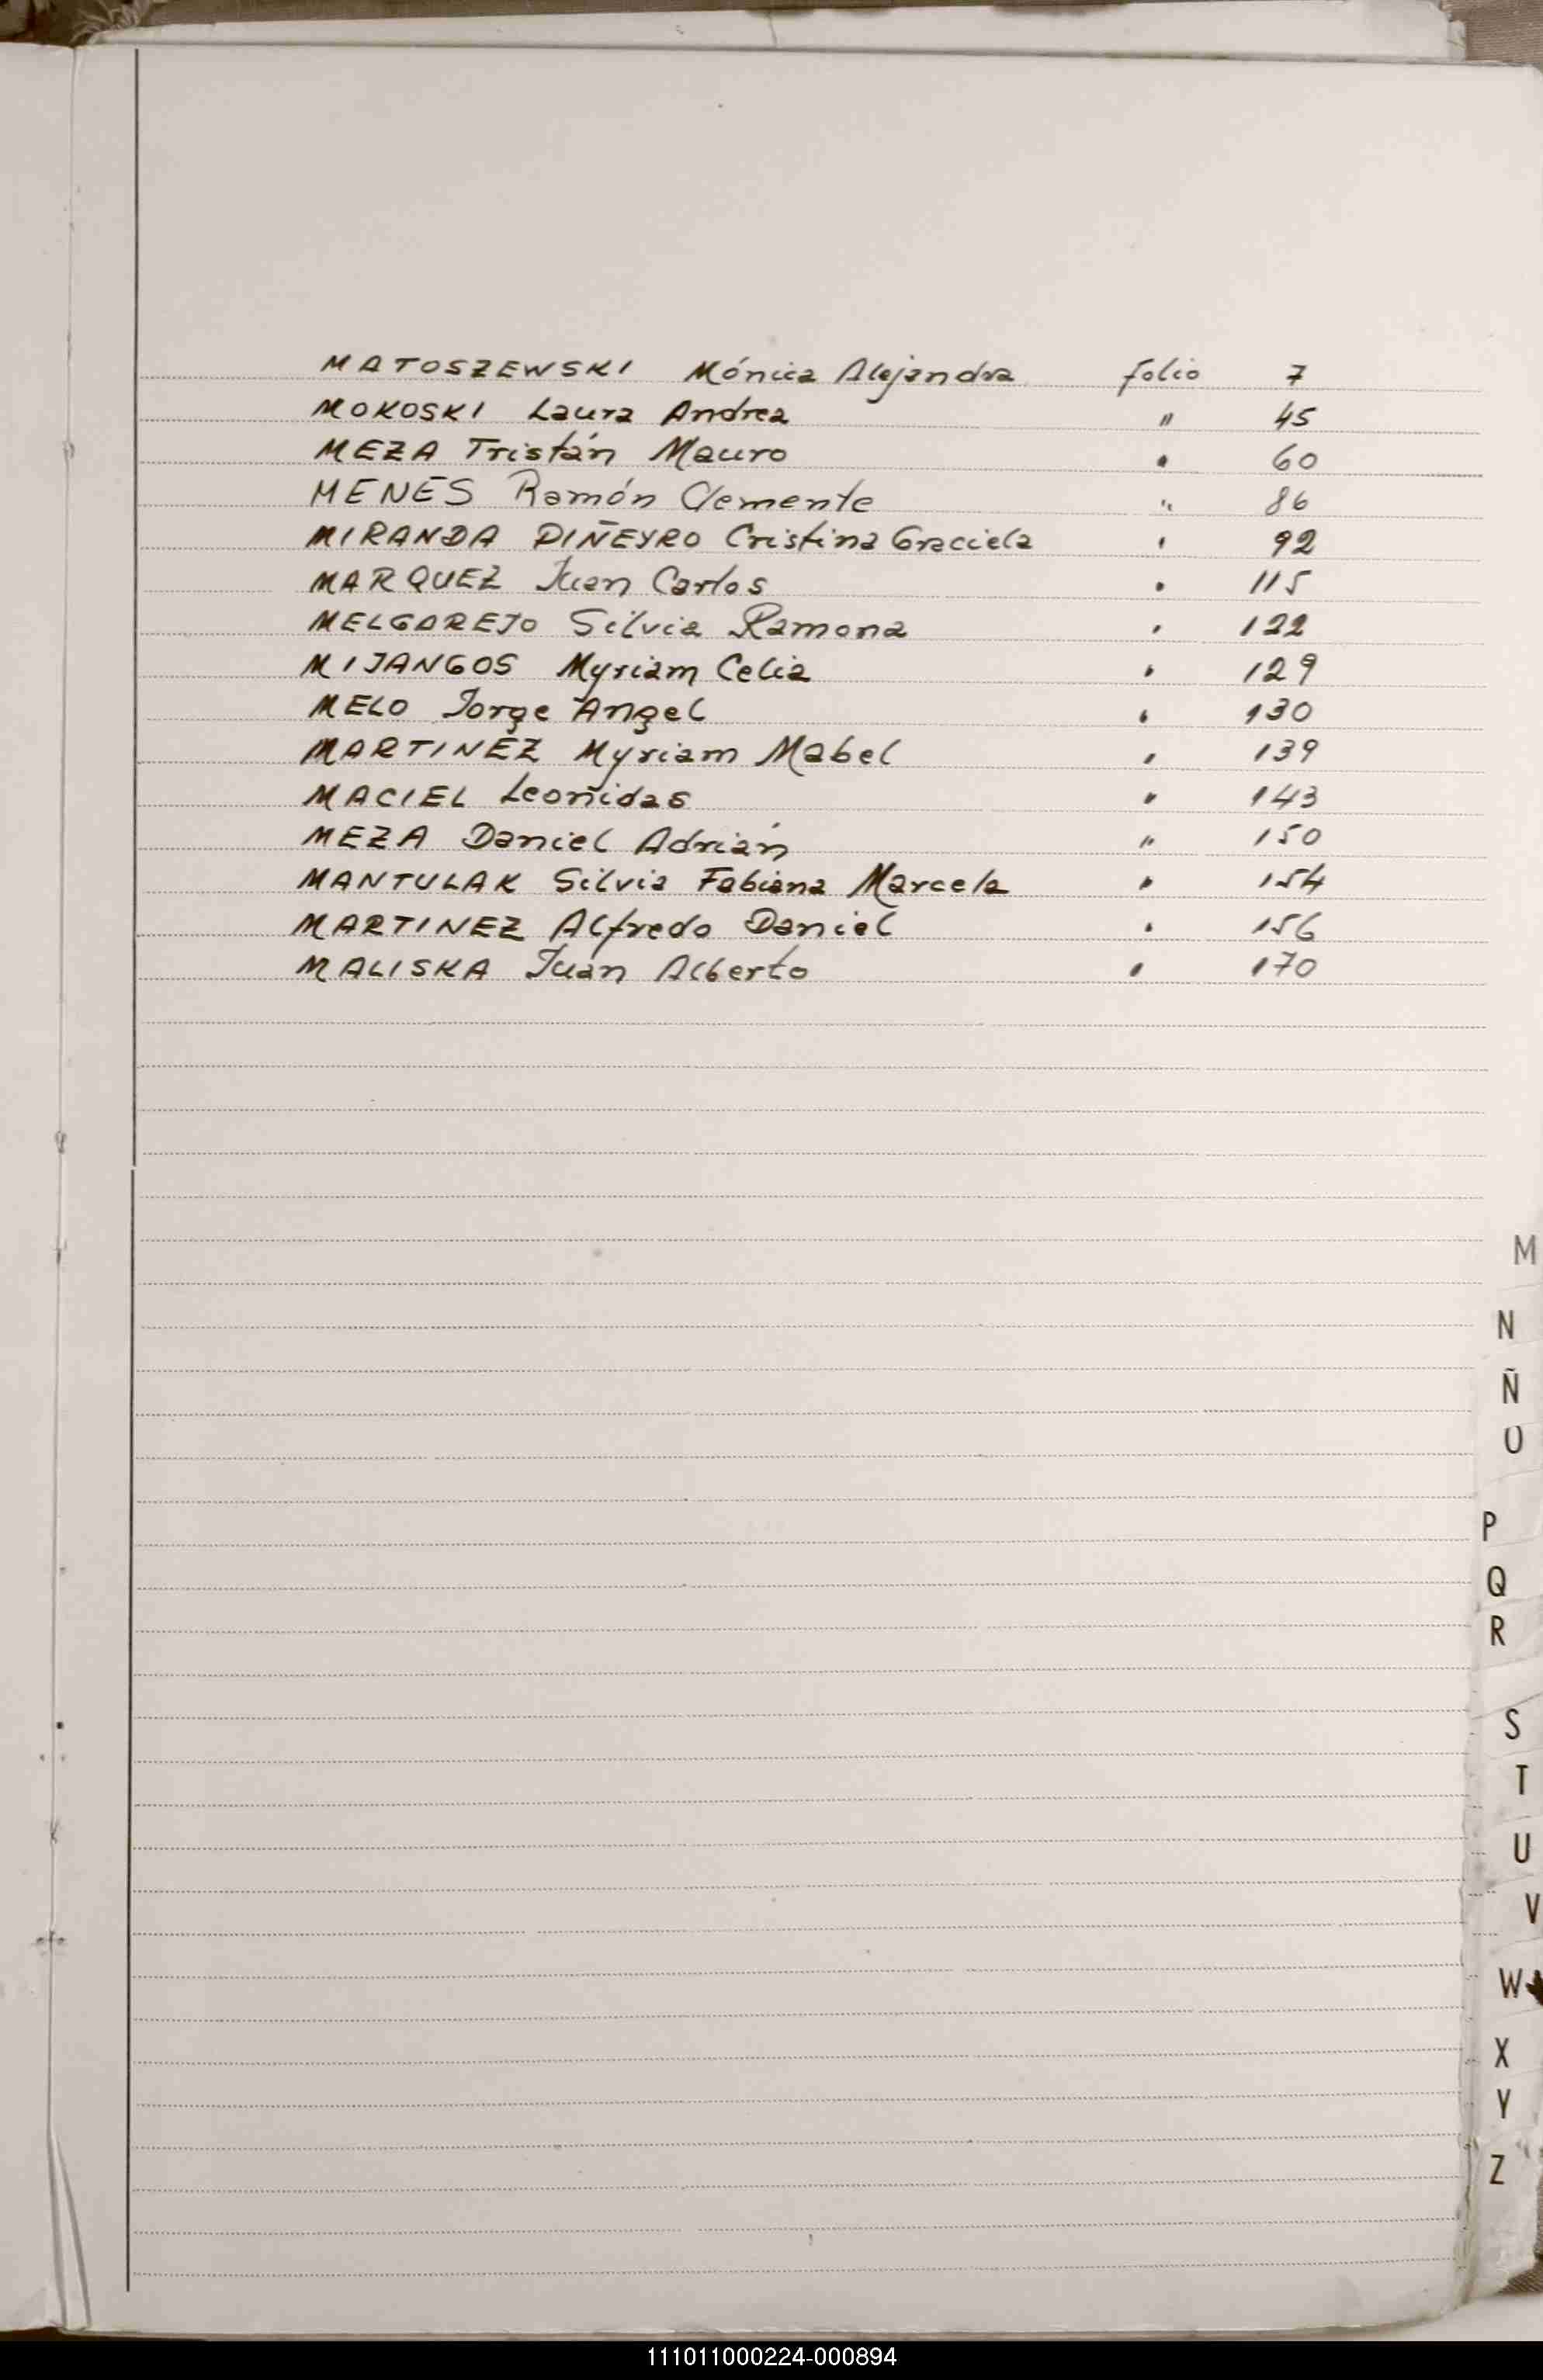 MATOSZEWSKI Mónica Alejandra folio 7
MOKOSKI Laura Andrea " 45
MEZA Tristán Mauro " 60
MENES Ramón Clemente " 86
MIRANDA PIÑEYRO Cristina Graciela " 92
MARQUEZ Juan Carlos " 115
MELGAREJO Silvia Ramona " 122
MIJANGOS Myriam Celia " 129
MELO Jorge Angel " 130
MARTINEZ Myriam Mabel " 139
MACIEL Leonidas " 143
MEZA Daniel Adrián " 150
MANTULAK Silvia Fabiana Marcela " 154
MARTINEZ Alfredo Daniel " 156
MALISKA Juan Alberto " 170
M
N
Ñ
O
P
Q
R
S
T
U
V
W
X
Y
Z
111011000224-000894